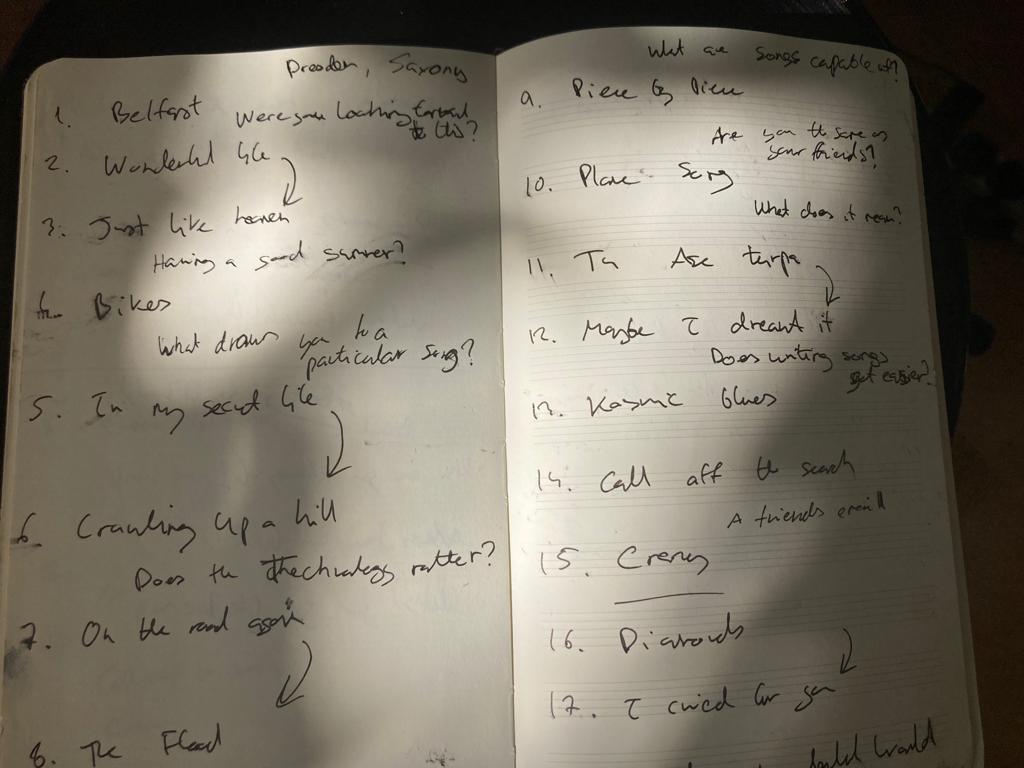 Dresden, Saxony
1. Belfast Were you looking forward
to this?
2. Wonderful life
3. Just like heaven
Having a good summer?
4. Bikes
What draws you to a
particular song?
5. In my secret life
6. Crawling up a hill
Does the technology matter?
7. On the road again
8. The Flood
What are songs capable of?
9. Piece by Piece
Are you the same as
your friends?
10. Plane Song
What does it mean?
11. Tu Ase turpa
12. Maybe I dreamt it
Does writing songs
get easier?
13. Kosmic blues
14. Call off the search
A friends email
15. Creeray
16. Diamonds
17. I cried for you
world